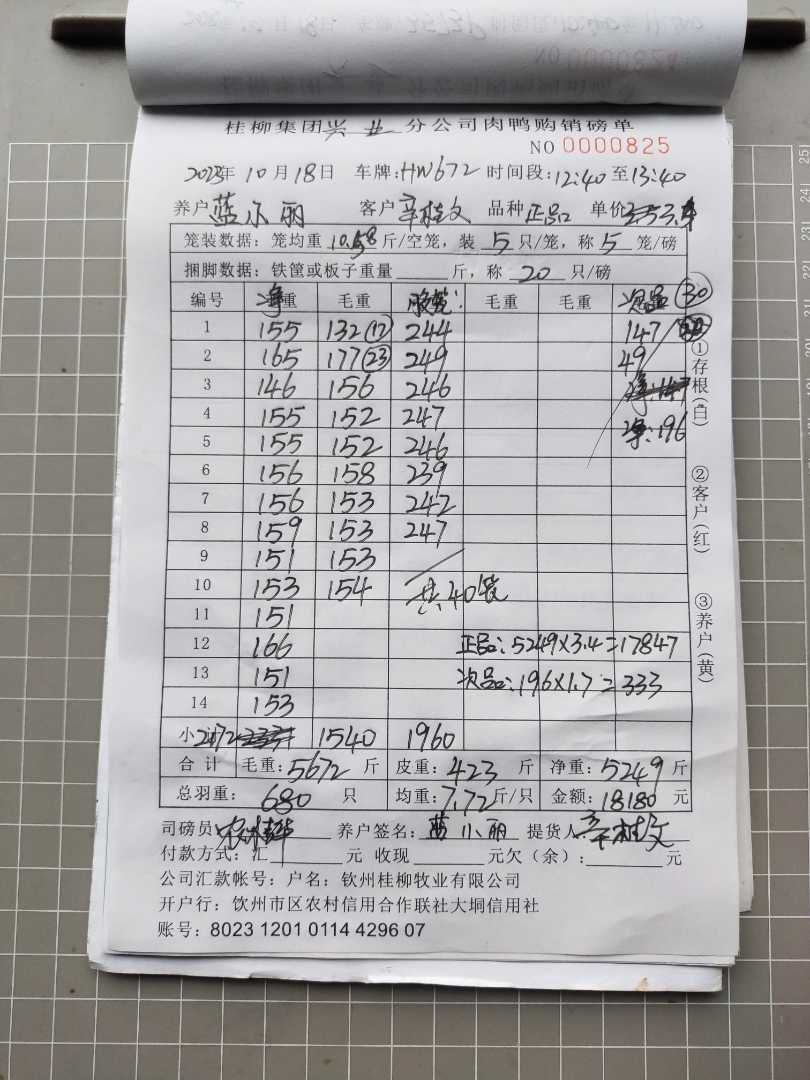 桂柳集团兴业分公司肉鸭购销磅单
NO 0000825
2023年10月18日 车牌:HW672 时间段:12:40至13:40
养户 蓝小丽 客户 辛桂文 品种 正品 单价 3.4
笼装数据: 笼均重 10.58 斤/空笼, 装 5 只/笼, 称 5 笼/磅
捆脚数据: 铁筐或板子重量 斤, 称 20 只/磅
编号 净重 毛重 毛重 毛重 次品 30
1 155 132(12) 244 147
2 165 177(23) 249 49
3 146 156 246
4 155 152 247 净:196
5 155 152 246
6 156 158 239
7 156 153 242
8 159 153 247
9 151 153
10 153 154 共40笼
11 151
12 166 正品:5249×3.4=17847
13 151 次品:196×1.7=333
14 153
小 2172 1540 1960
合计 毛重:5672斤 皮重:423斤 净重:5249斤
总羽重: 680 只 均重:7.72斤/只 金额:18180元
司磅员 养户签名: 蓝小丽 提货人: 辛桂文
付款方式: 汇 元 收现 元欠(余): 元
公司汇款帐号: 户名: 钦州桂柳牧业有限公司
开户行: 饮州市区农村信用合作联社大垌信用社
账号: 8023 1201 0114 4296 07
①存根(白)
②客户(红)
③养户(黄)